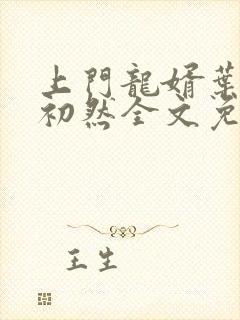 上門龍婿葉
初然全文免
王生